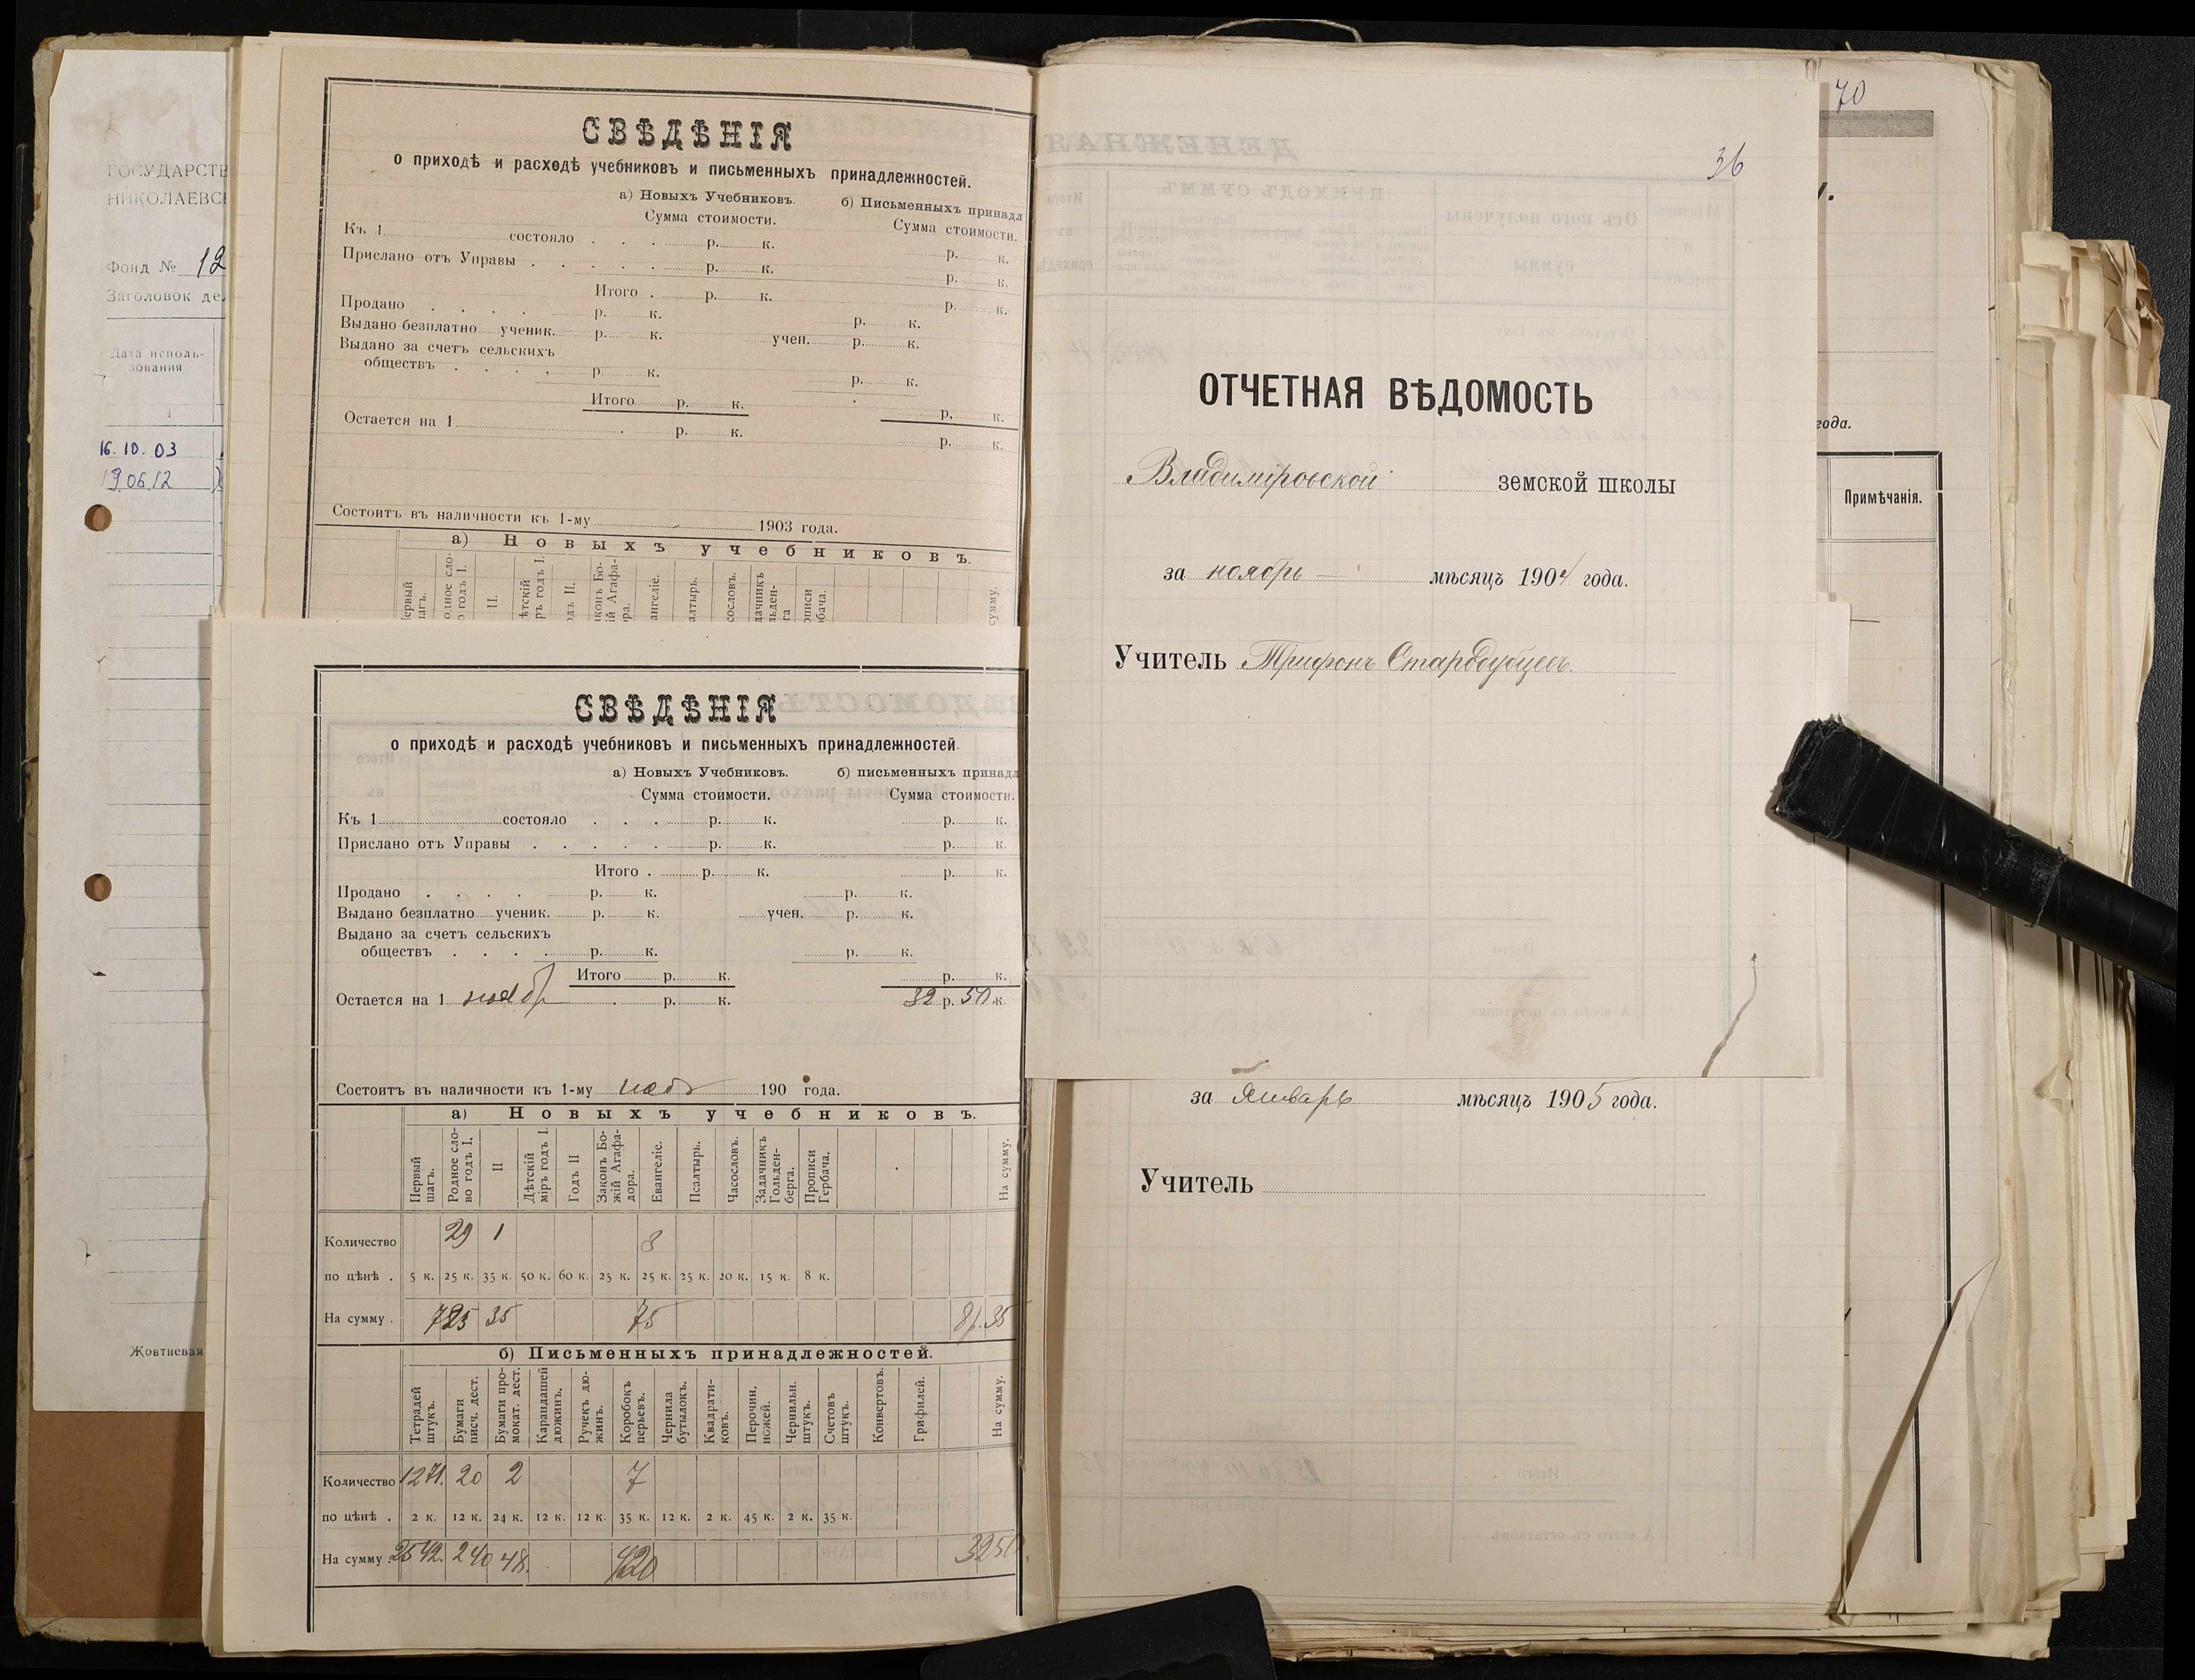 ГОСУДАРСТВ
НИКОЛАЕВС
Фонд № 12
Заголовок де
Дата исполь-
зования
1
16.10.03
19.06.12
Жовтневая
СВѢДѢНІЯ
о приходѣ и расходѣ учебниковъ и письменныхъ принадлежностей.
а) Новыхъ Учебниковъ. б) Письменныхъ принадл
Сумма стоимости. Сумма стоимости.
Къ 1 состояло р. к. р. к.
Прислано отъ Управы р. к. р. к.
Итого р. к. р. к.
Продано р. к. р. к.
Выдано безплатно ученик. р. к. учен. р. к.
Выдано за счетъ сельскихъ
обществъ р. к. р. к.
Итого р. к. р. к.
Остается на 1 р. к. р. к.
Состоитъ въ наличности къ 1-му 1903 года.
а) Новыхъ учебниковъ.
СВѢДѢНІЯ
о приходѣ и расходѣ учебниковъ и письменныхъ принадлежностей.
а) Новыхъ Учебниковъ. б) письменныхъ принадл
Сумма стоимости. Сумма стоимости.
Къ 1 состояло р. к. р. к.
Прислано отъ Управы р. к. р. к.
Итого р. к. р. к.
Продано р. к. р. к.
Выдано безплатно ученик. р. к. учен. р. к.
Выдано за счетъ сельскихъ
обществъ р. к. р. к.
Итого р. к. р. к.
Остается на 1 ноябр р. к. 32 р. 50 к.
Состоитъ въ наличности къ 1-му нояб 190 года.
а) Новыхъ учебниковъ.
Первый шагъ. Родное слово годъ I. II Дѣтскій міръ годъ I. Годъ II Законъ Божій Агафадора. Евангеліе. Псалтырь. Часословъ. Задачникъ Гольденберга. Прописи Гербача. На сумму.
Количество 29 1 3
по цѣнѣ . 5 к. 25 к. 35 к. 50 к. 60 к. 25 к. 25 к. 25 к. 20 к. 15 к. 8 к.
На сумму . 725 35 75 8 р. 35
б) Письменныхъ принадлежностей.
Тетрадей штукъ. Бумаги писч. дест. Бумаги промокат. дест. Карандашей дюжинъ. Ручекъ дюжинъ. Коробокъ перьевъ. Чернила бутылокъ. Квадратиковъ. Перочин. ножей. Чернильн. штукъ. Счетовъ штукъ. Конвертовъ. Грифилей. На сумму.
Количество 1271. 20 2 7
по цѣнѣ . 2 к. 12 к. 24 к. 12 к. 12 к. 35 к. 12 к. 2 к. 45 к. 2 к. 35 к.
На сумму . 2542. 240 48. 420 3250
36
ОТЧЕТНАЯ ВѢДОМОСТЬ
Владиміровской земской школы
за ноябрь мѣсяцъ 1904 года.
Учитель Трифонъ Стародубцевъ.
за Январь мѣсяцъ 1905 года.
Учитель
70
года.
Примѣчанія.